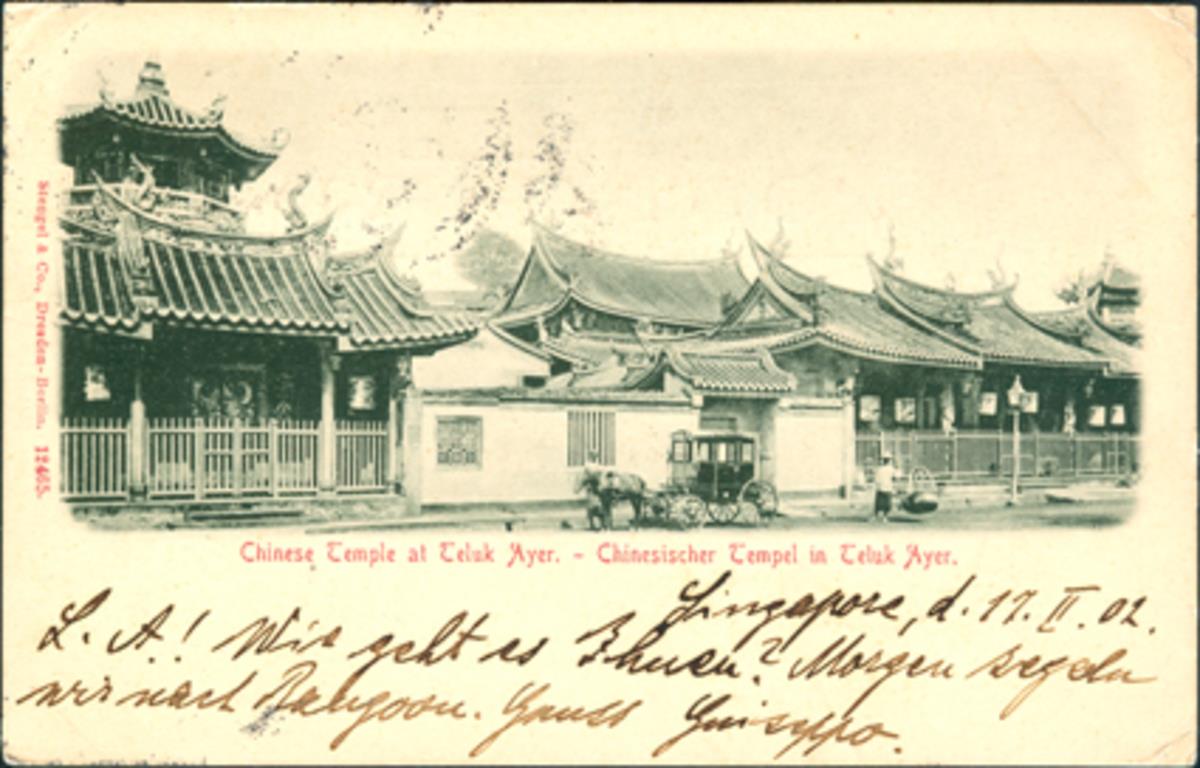 Stengel & Co., Dresden-Berlin. 12465.
Chinese Temple at Teluk Ayer. - Chinesischer Tempel in Teluk Ayer.
Singapore, d. 17. II. 02.
L. A.! Wie geht es Ihnen? Morgen segeln
wir nach Rangoon. Gruss